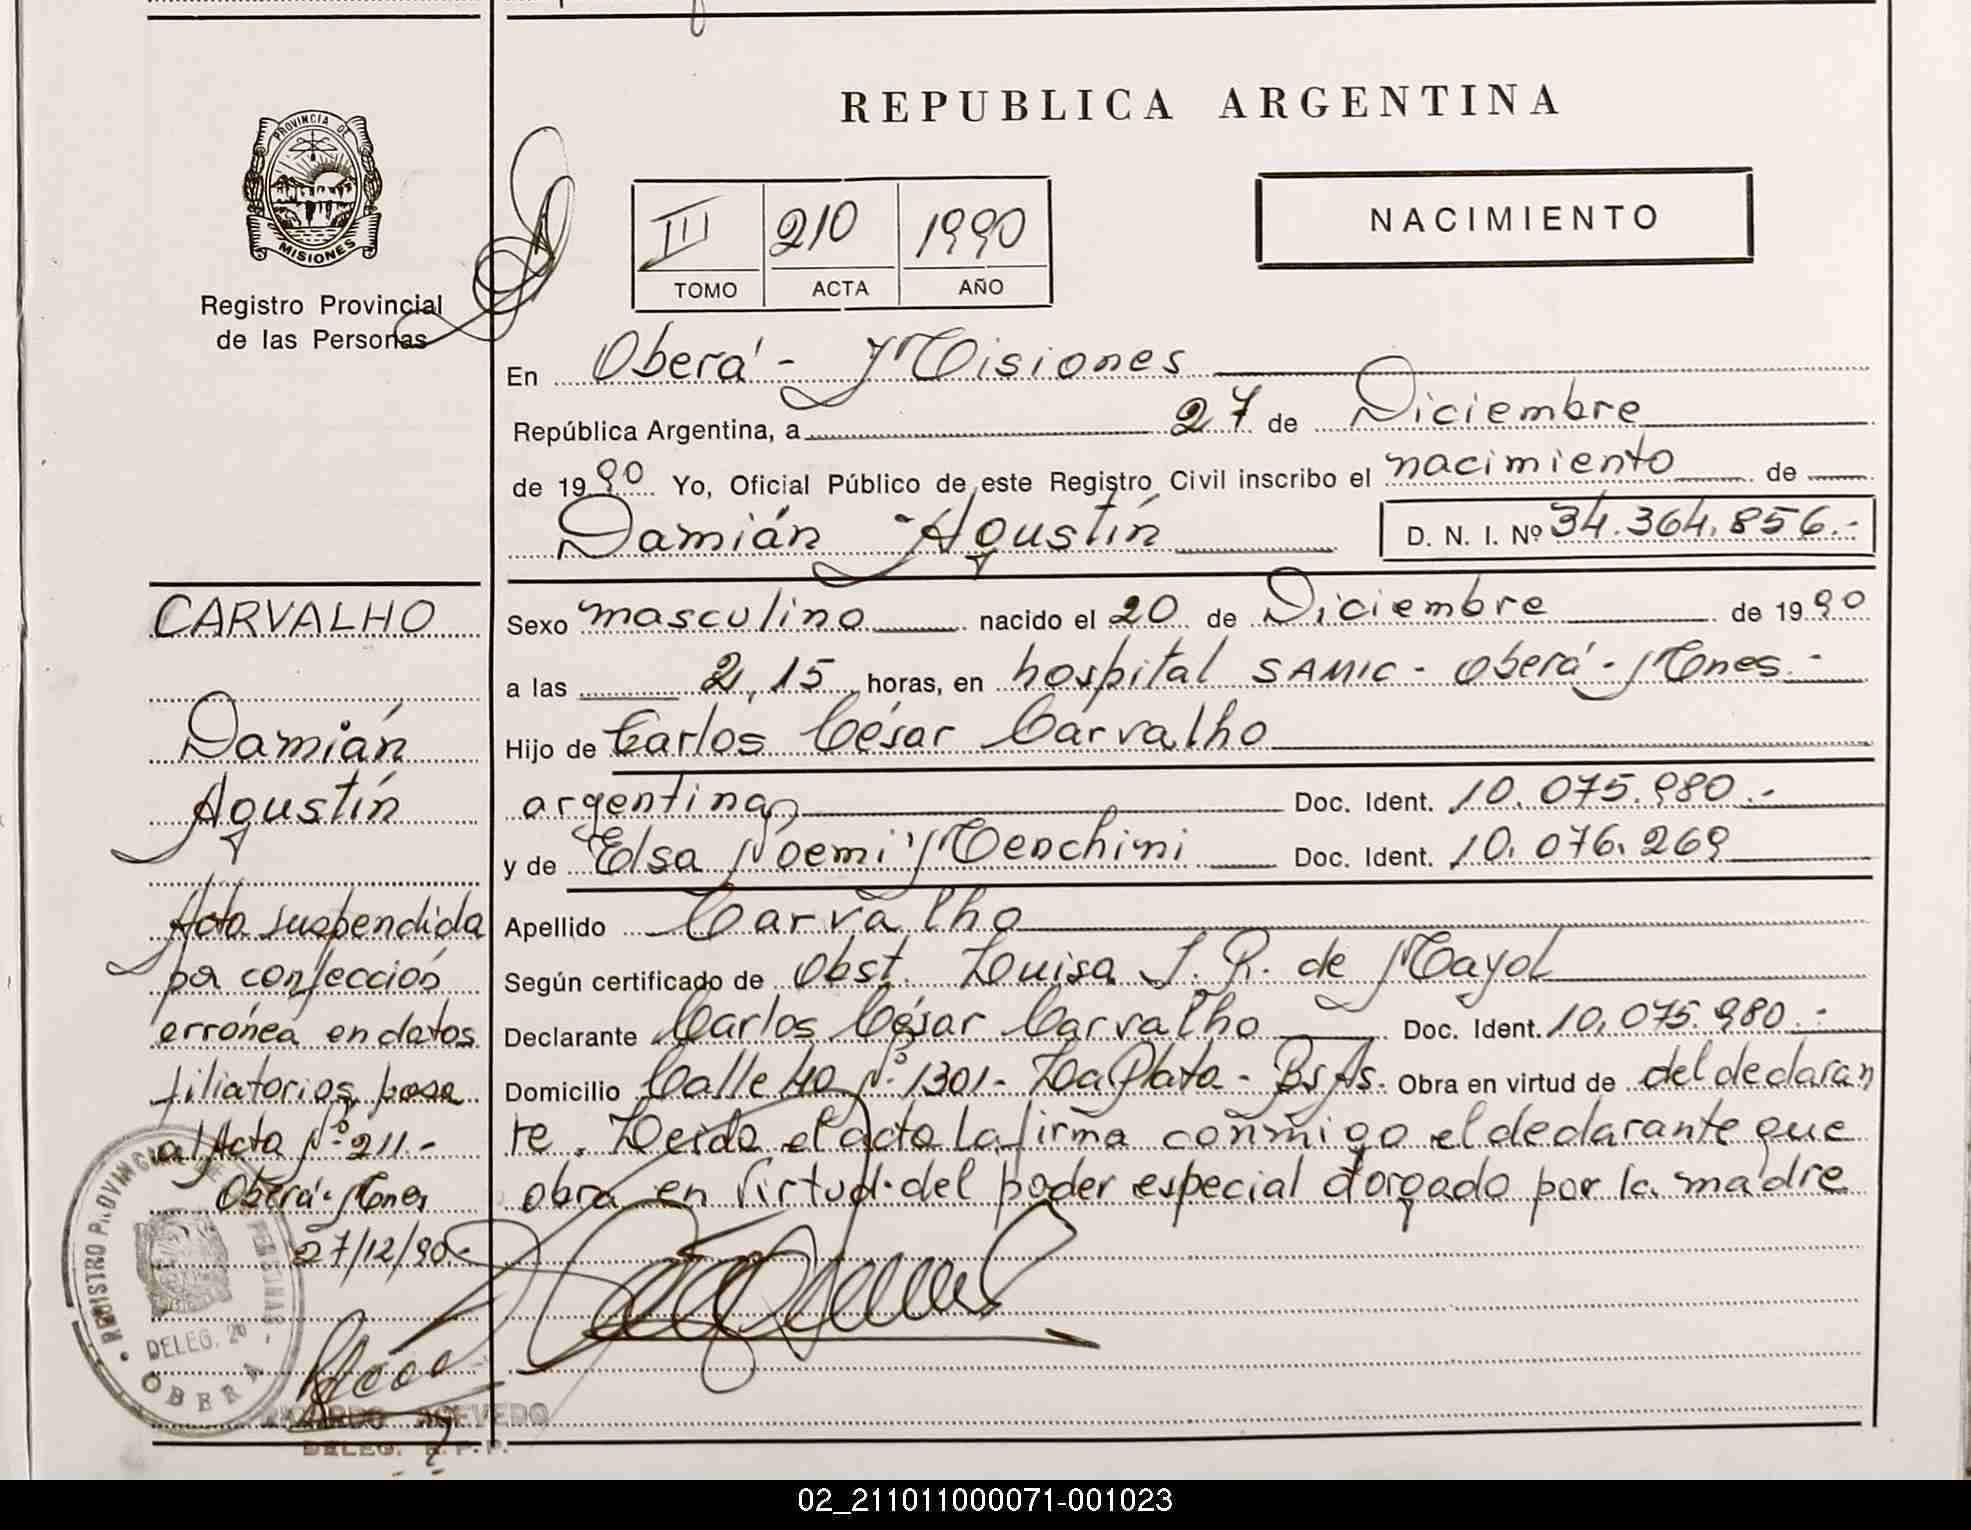 PROVINCIA DE
MISIONES
Registro Provincial
de las Personas
REPUBLICA ARGENTINA
III 210 1990
TOMO ACTA AÑO
NACIMIENTO
En Oberá - Misiones
República Argentina, a 27 de Diciembre
de 1990 Yo, Oficial Público de este Registro Civil inscribo el nacimiento de
Damián Agustín D. N. I. Nº 34.364.856.-
Sexo masculino nacido el 20 de Diciembre de 1990
a las 2,15 horas, en hospital SAMIC - Oberá - Mones.-
Hijo de Carlos César Carvalho
argentina Doc. Ident. 10.075.980.-
y de Elsa Noemi Menchini Doc. Ident. 10.076.269
Apellido Carvalho
Según certificado de Obst. Luisa J. R. de Mayol
Declarante Carlos César Carvalho Doc. Ident. 10.075.980.-
Domicilio Calle 40 Nº 1301 - La Plata - Bs As. Obra en virtud de del declaran
te. Leida el acta la firma conmigo el declarante que
obra en virtud del poder especial otorgado por la madre
CARVALHO
Damián
Agustín
Acta suspendida
por confección
errónea en datos
filiatorios, pasa
al Acta Nº 211.-
Oberá - Mones
27/12/90.-
REGISTRO PROVINCIAL DE LAS PERSONAS
DELEG. 20
OBERA
RICARDO ACEVEDO
DELEG. R.P.P.
02_211011000071-001023